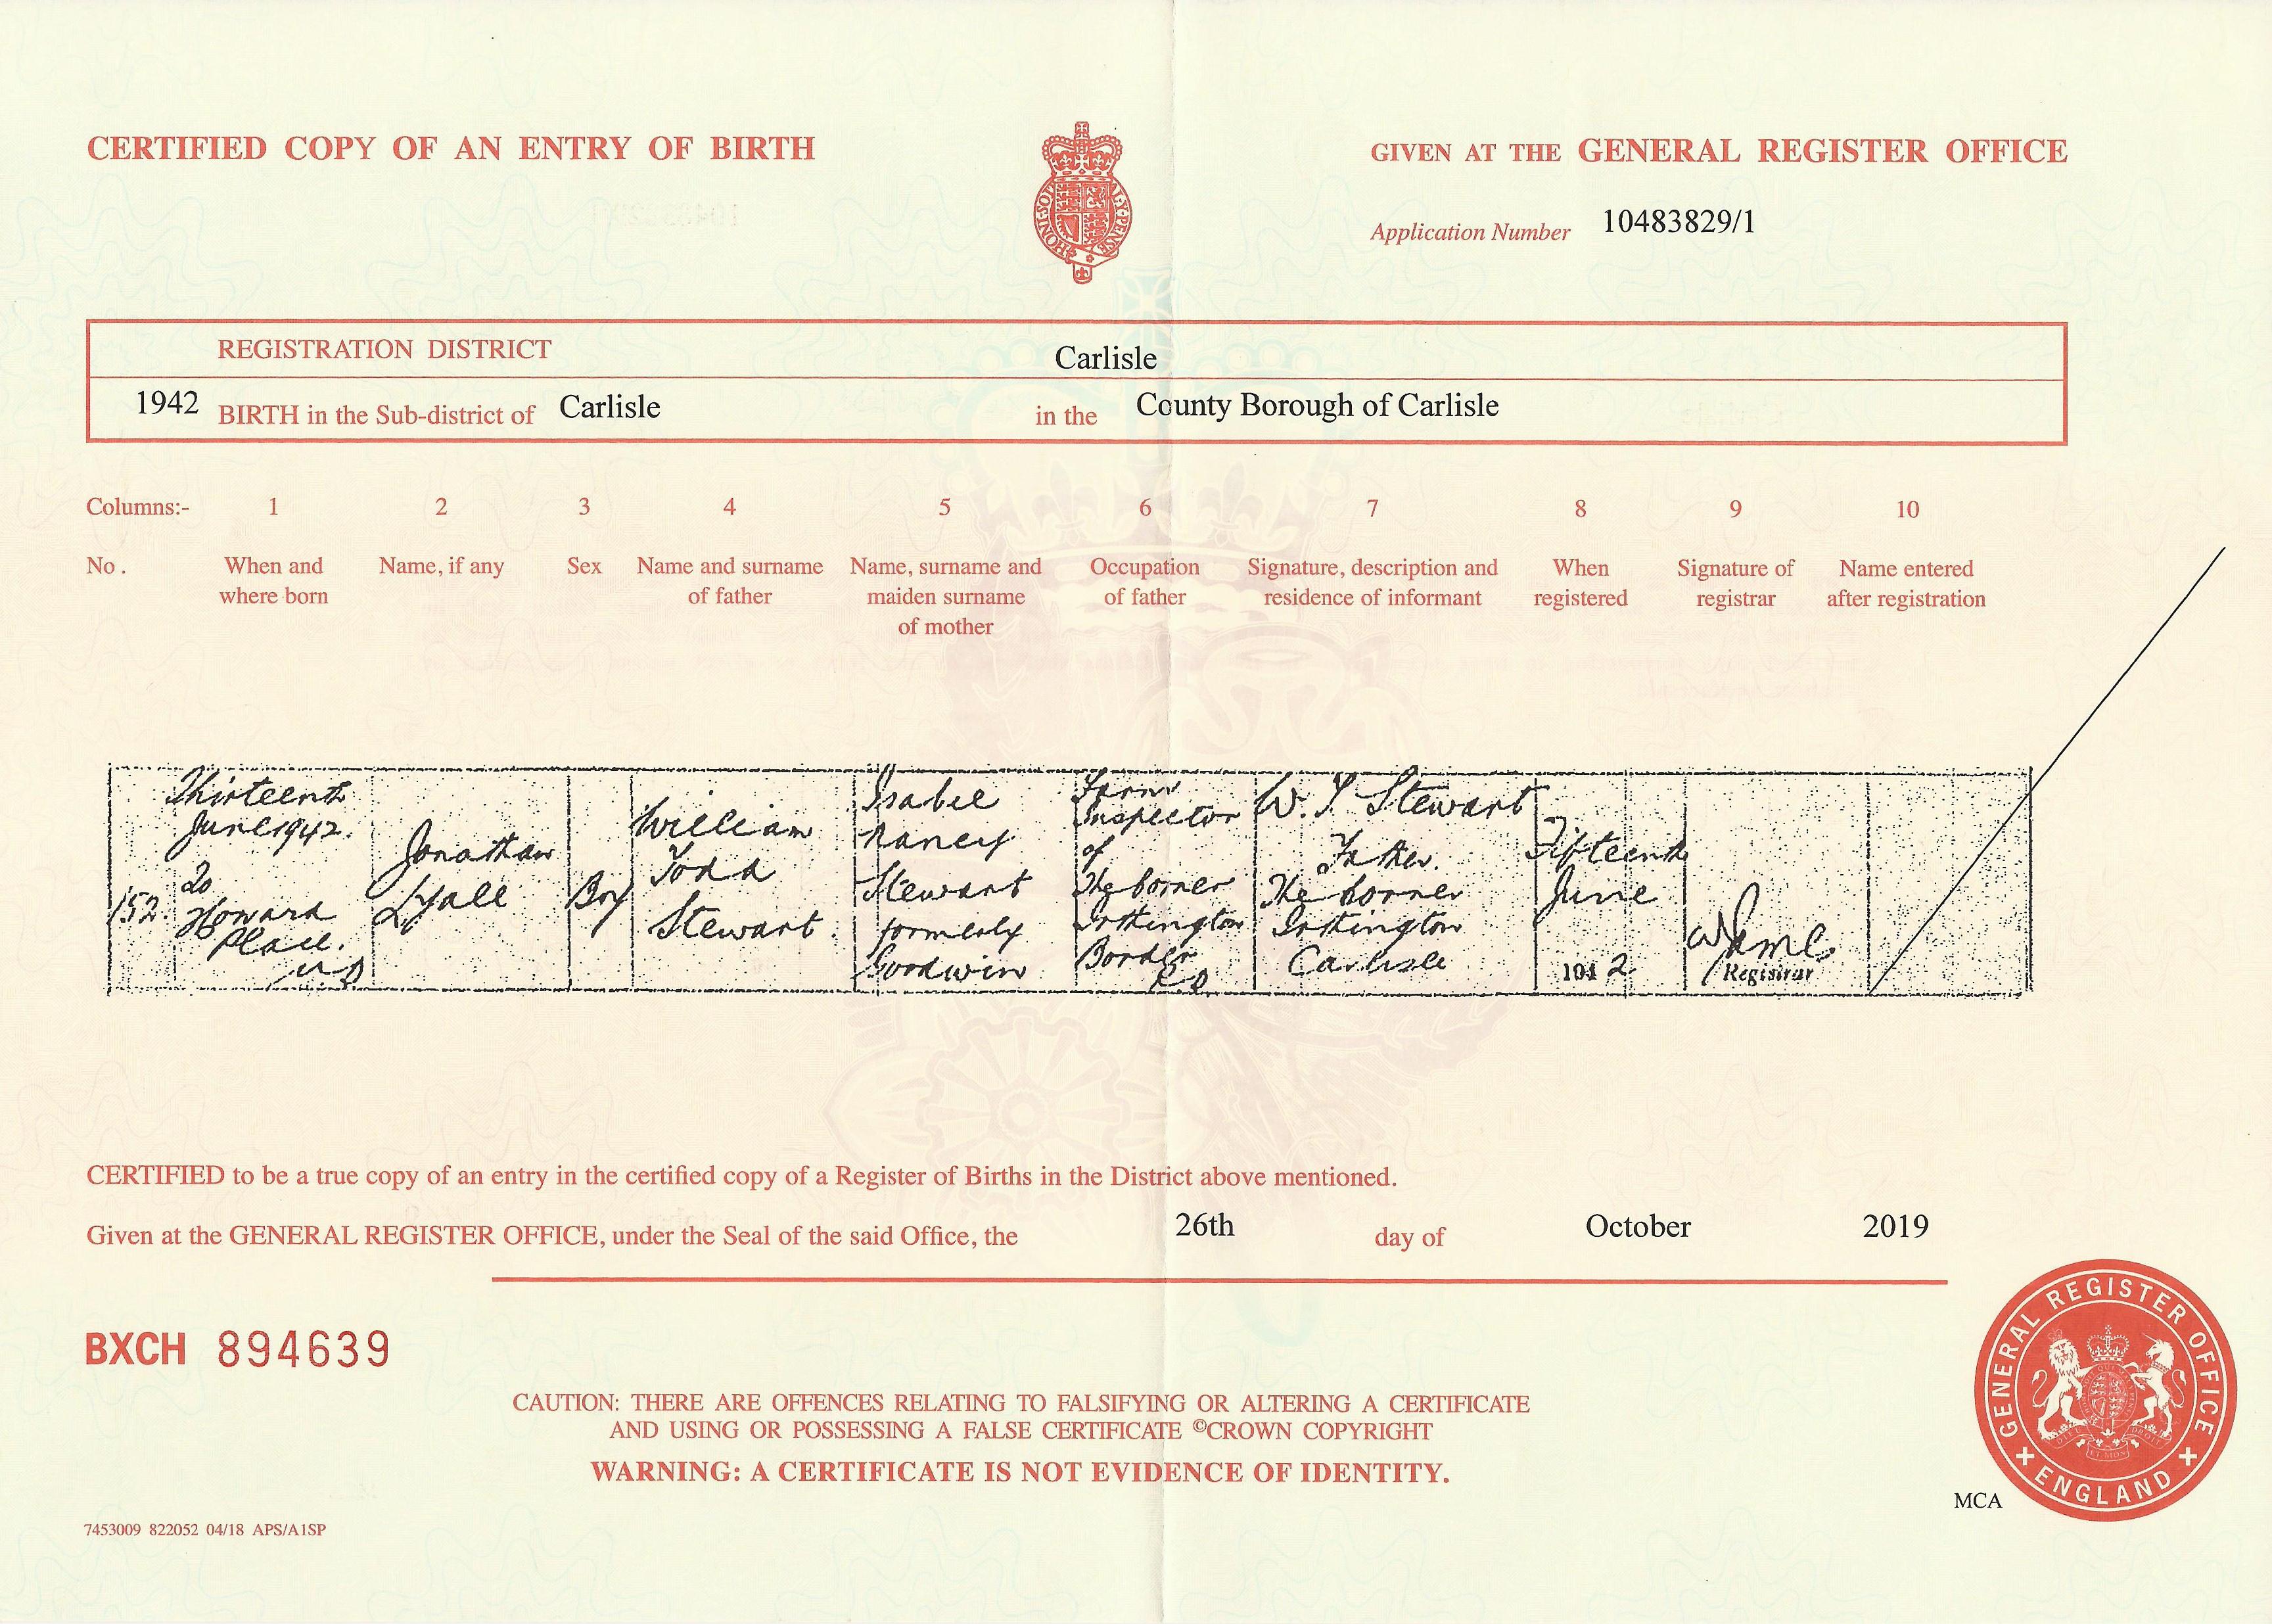 CERTIFIED COPY OF AN ENTRY OF BIRTH
GIVEN AT THE GENERAL REGISTER OFFICE
HONI SOIT MAL Y PENSE
Application Number 10483829/1
REGISTRATION DISTRICT Carlisle
1942 BIRTH in the Sub-district of Carlisle in the County Borough of Carlisle
Columns:- 1 2 3 4 5 6 7 8 9 10
No. When and where born
Name, if any
Sex
Name and surname of father
Name, surname and maiden surname of mother
Occupation of father
Signature, description and residence of informant
When registered
Signature of registrar
Name entered after registration
152
Thirteenth
June 1942.
20
Howard
Place.
U.D
Jonathan
Lyall
Boy
William
Todd
Stewart.
Isabel
Nancy
Stewart
formerly
Goodwin
Farm
Inspector
of
The Corner
Irthington
Border
R.D.
W. T. Stewart
Father.
The Corner
Irthington
Carlisle
Fifteenth
June
1942
Registrar
CERTIFIED to be a true copy of an entry in the certified copy of a Register of Births in the District above mentioned.
Given at the GENERAL REGISTER OFFICE, under the Seal of the said Office, the 26th day of October 2019
BXCH 894639
CAUTION: THERE ARE OFFENCES RELATING TO FALSIFYING OR ALTERING A CERTIFICATE
AND USING OR POSSESSING A FALSE CERTIFICATE ©CROWN COPYRIGHT
WARNING: A CERTIFICATE IS NOT EVIDENCE OF IDENTITY.
GENERAL REGISTER OFFICE
ENGLAND
MCA
7453009 822052 04/18 APS/A1SP